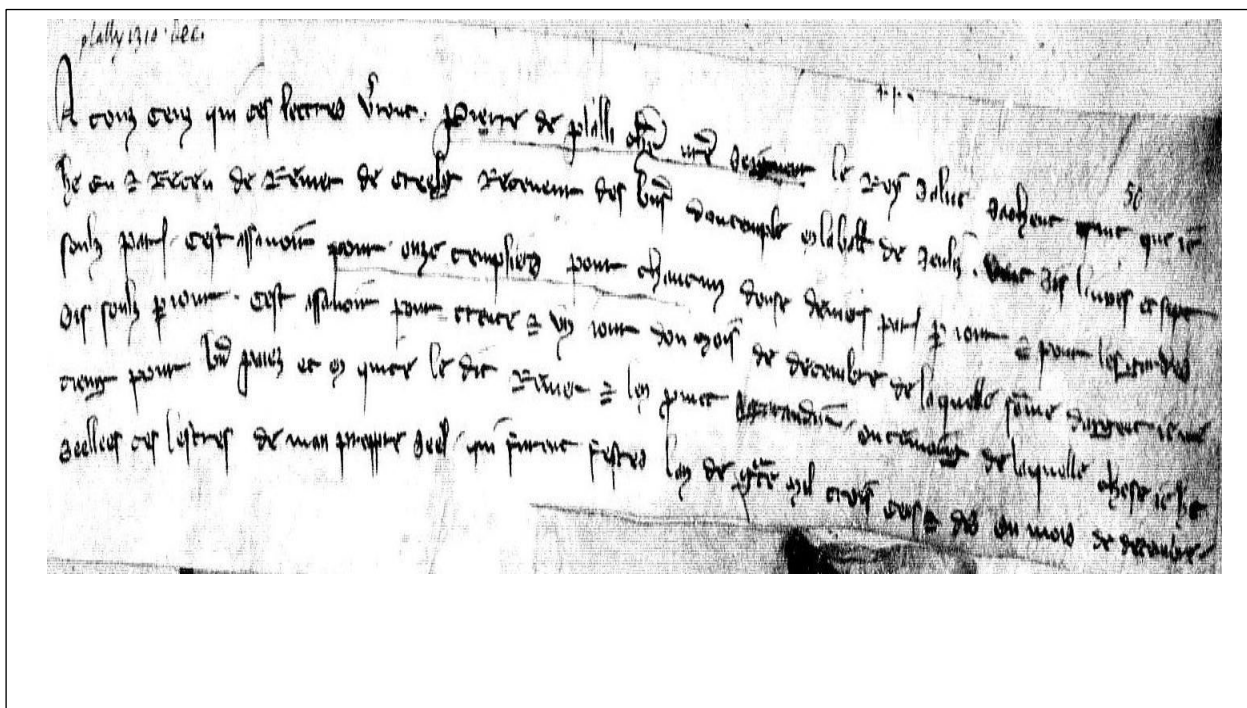 plally 1310. Dec.
A touz ceus qui ces lettres vront. pierre de plalli nre le Roy salut sachent tuit que ie
50
he eu & receu de Renier de creeil Receveur des bns dou temple en la ball de senliz. dis livres et sept
soulz pars. cest assavoir pour onze templiers pour chaucun douse deniers pars p iour & pour les gardes
dis soulz p iour. cest assavoir pour trente & un iour dou mois de decembre de laquelle some dargent ie me
tieng pour bn paiez et en quite le dit Renier & len garandir. en tesmoing de laquelle chose ie he
seellees ces lestres de mon propre seel. qui furent festes lan de grace mil trois cens & dis ou mois de decembre